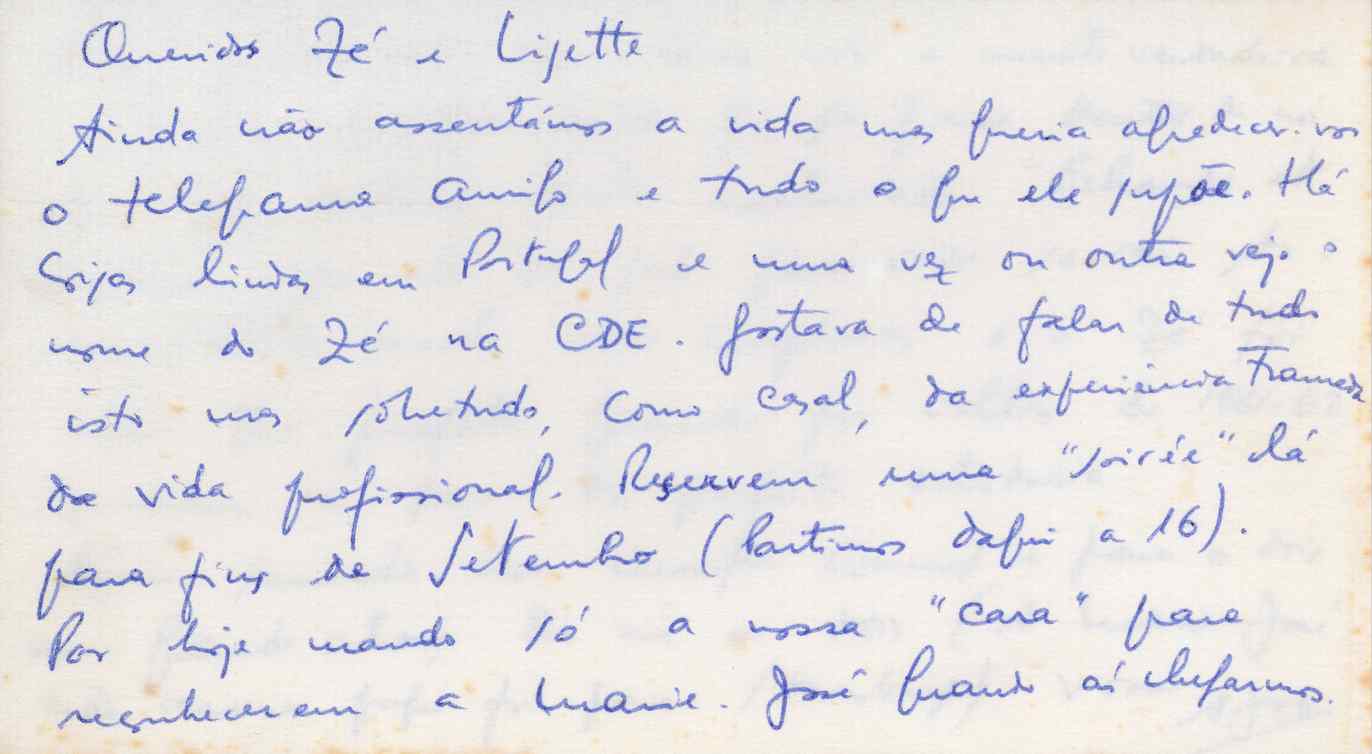 Queridos Zé e Lisette
Ainda não assentámos a vida mas queria agradecer-vos
o telegrama amigo e tudo o que ele supõe. Há
coisas lindas em Portugal e uma vez ou outra vejo o
nome do Zé na CDE. Gostava de falar de tudo
isto mas sobretudo, como casal, da experiência tramada
da vida profissional. Reservem uma "soirée" lá
para fins de Setembro (Partimos daqui a 16).
Por hoje mando só a nossa "cara" para
reconhecerem a Marie. José quando aí chegarmos.